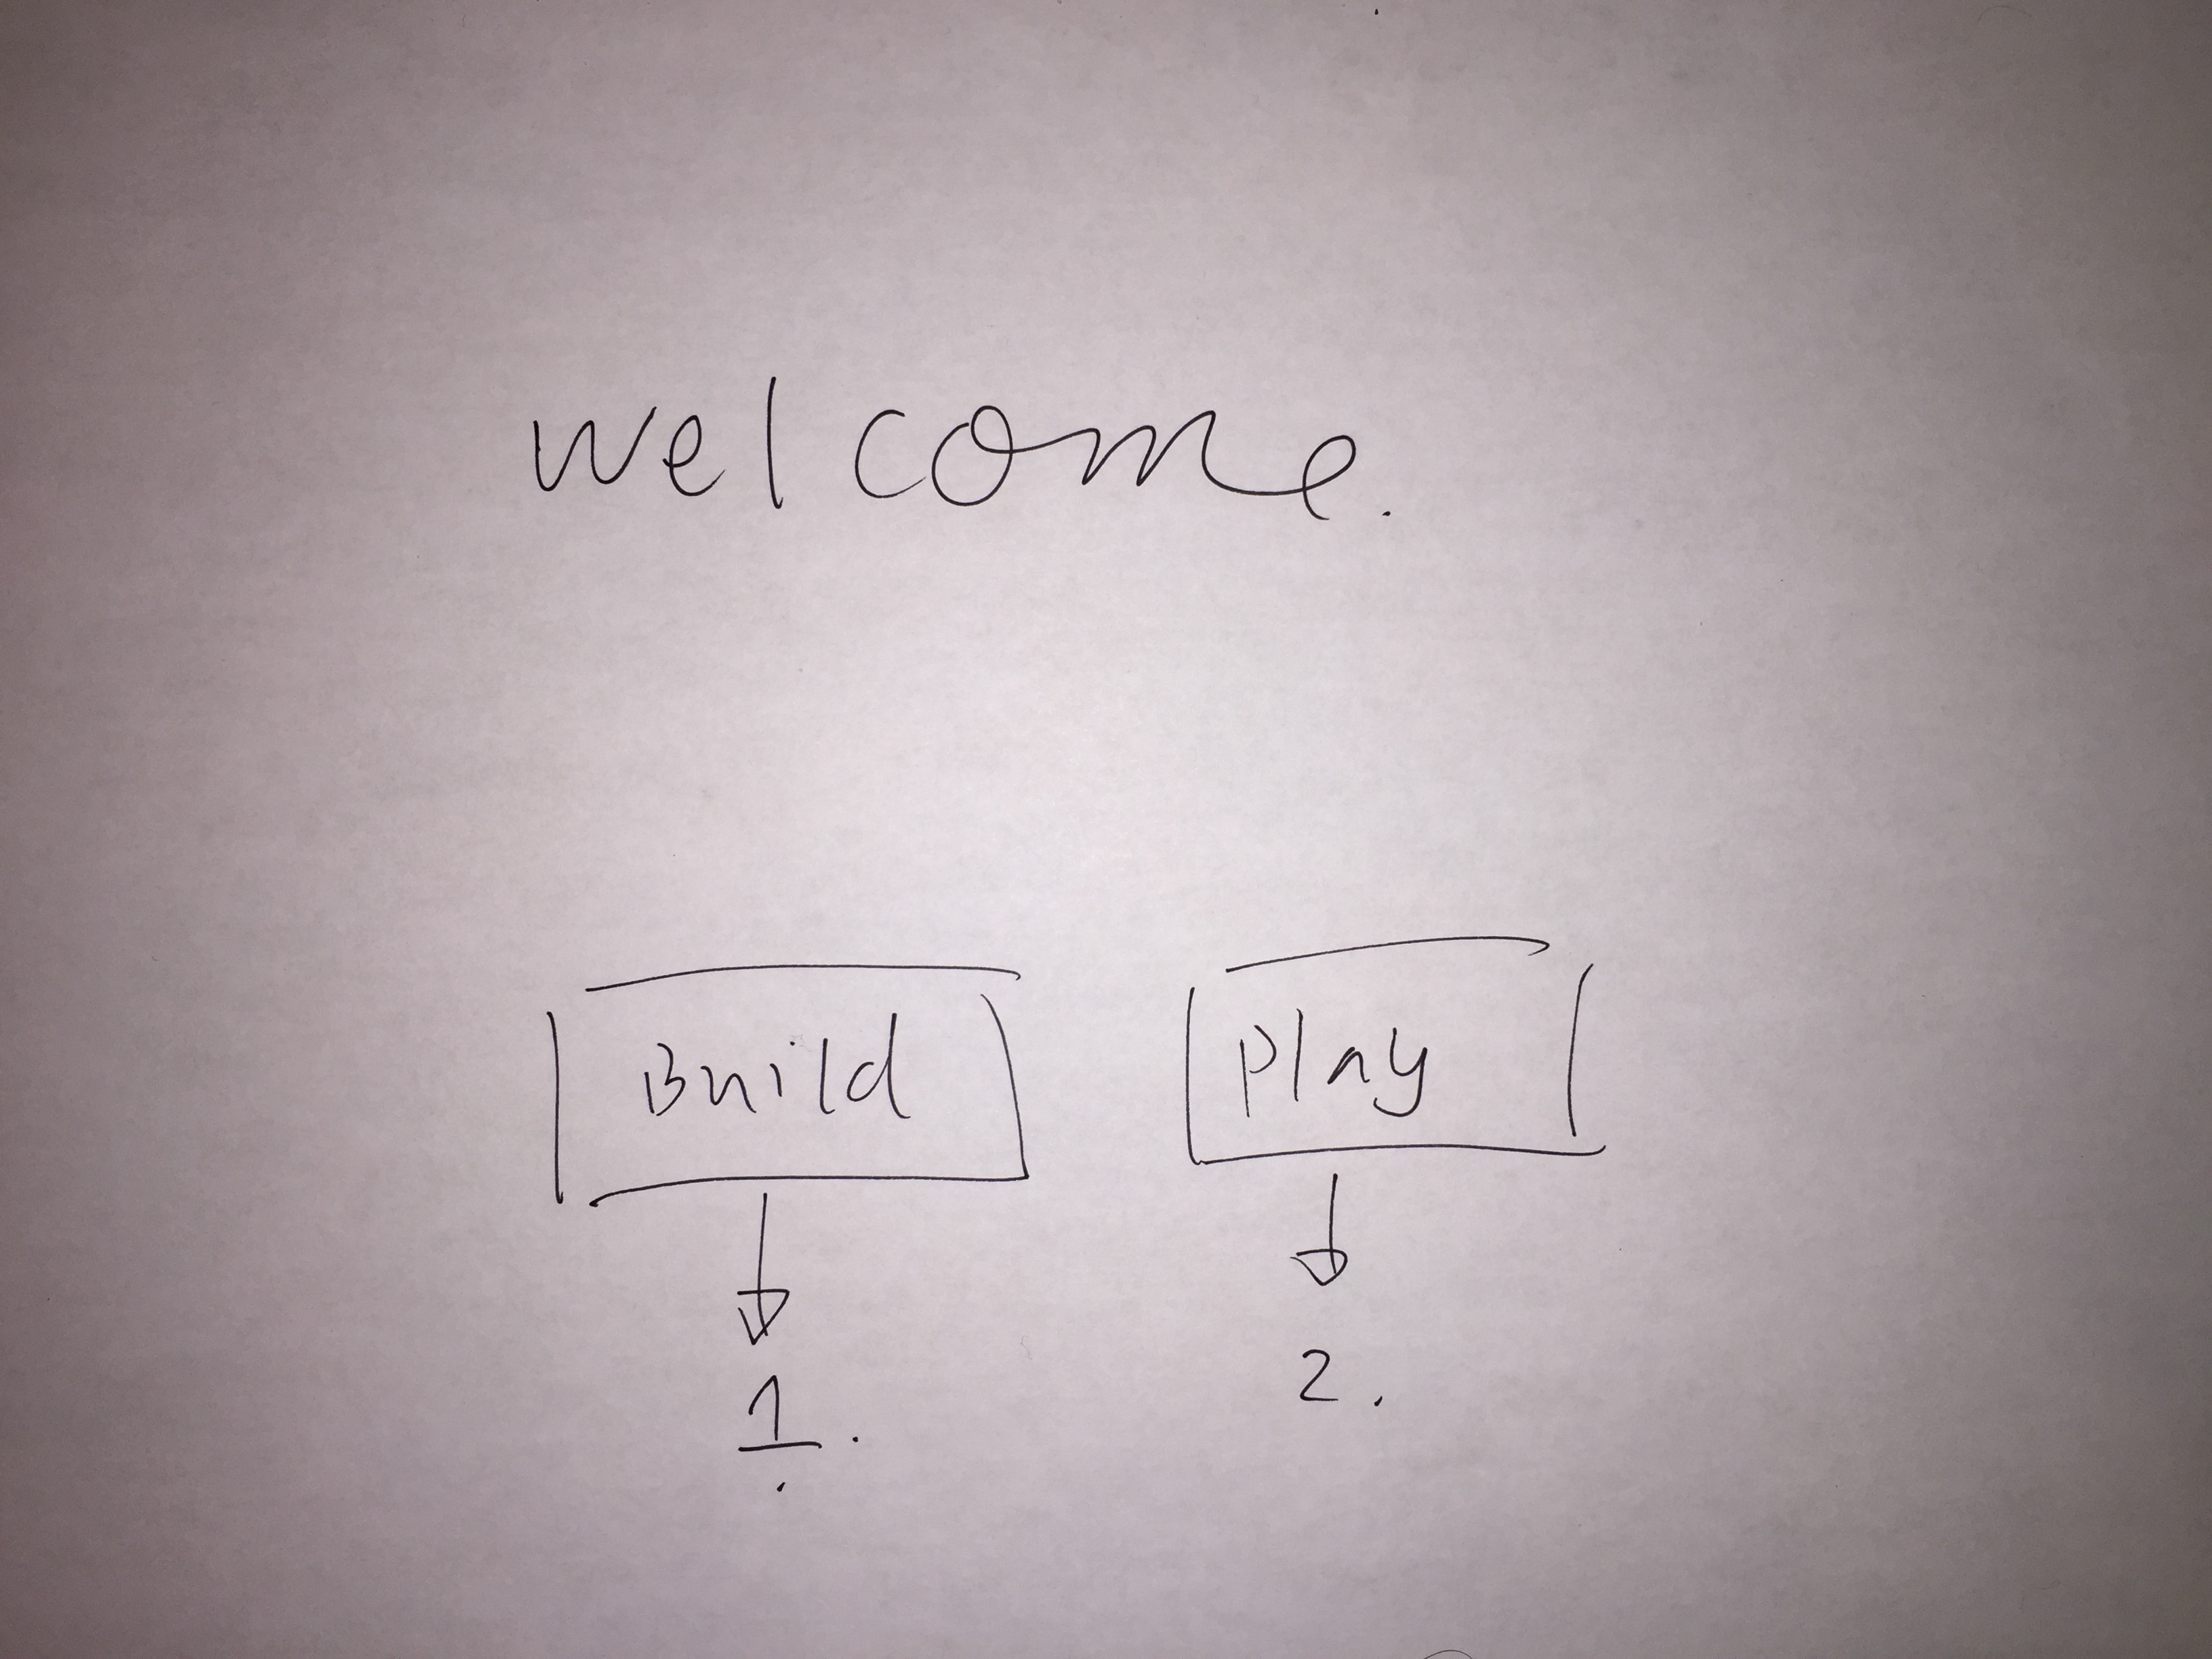 welcome.
Build
Play
1.
2.